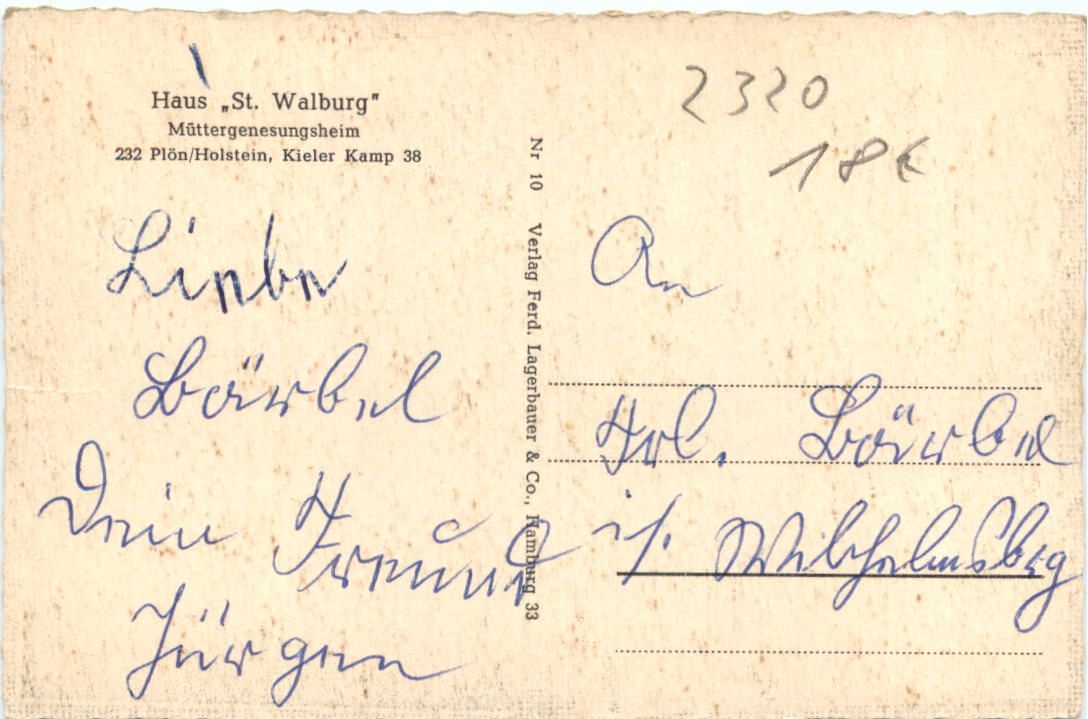 Haus „St. Walburg"
Müttergenesungsheim
232 Plön/Holstein, Kieler Kamp 38
Liebe
Bärbel
Dein Freund
Jürgen
Nr 10 Verlag Ferd. Lagerbauer & Co., Hamburg 33
2320
18 €
An
Frl. Bärbel
i/. Wilhelmsbg